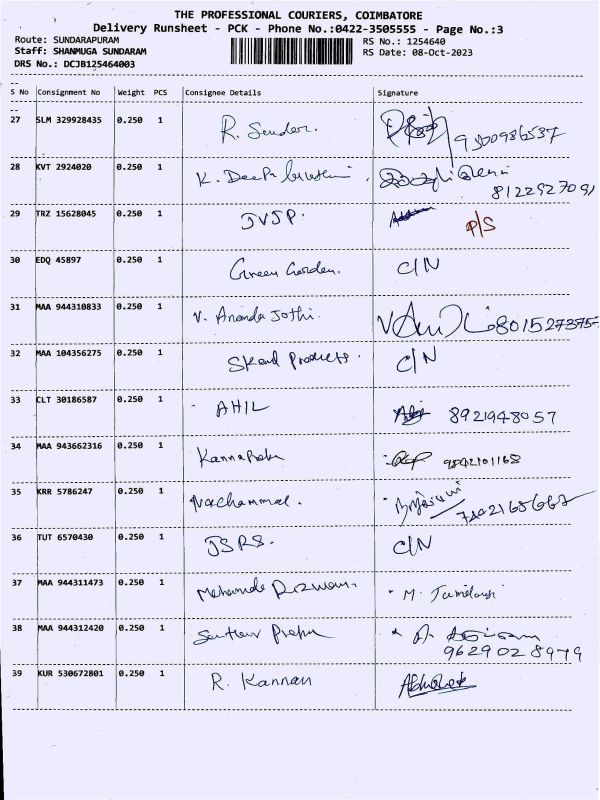 THE PROFESSIONAL COURIERS, COIMBATORE
Delivery Runsheet - PCK - Phone No.:0422-3505555 - Page No.:3
Route: SUNDARAPURAM RS No.: 1254640
Staff: SHANMUGA SUNDARAM RS Date: 08-Oct-2023
DRS No.: DCJB125464003
S No Consignment No Weight PCS Consignee Details Signature
27 SLM 329928435 0.250 1 R. Sunder.
28 KVT 2924020 0.250 1 K. Deepa
8122927091
29 TRZ 15628045 0.250 1 JVJP. P/S
30 EDQ 45897 0.250 1 Green Garden. C/N
31 MAA 944310833 0.250 1 V. Ananda Jothi. 8015273757
32 MAA 104356275 0.250 1 Skand Products. C/N
33 CLT 30186587 0.250 1 AHIL 8921948057
34 MAA 943662316 0.250 1 9842101168
35 KRR 5786247 0.250 1 Nachammal.
36 TUT 6570430 0.250 1 JSRS. C/N
37 MAA 944311473 0.250 1 M.
38 MAA 944312420 0.250 1
9629028979
39 KUR 530672801 0.250 1 R. Kannan Abhishek